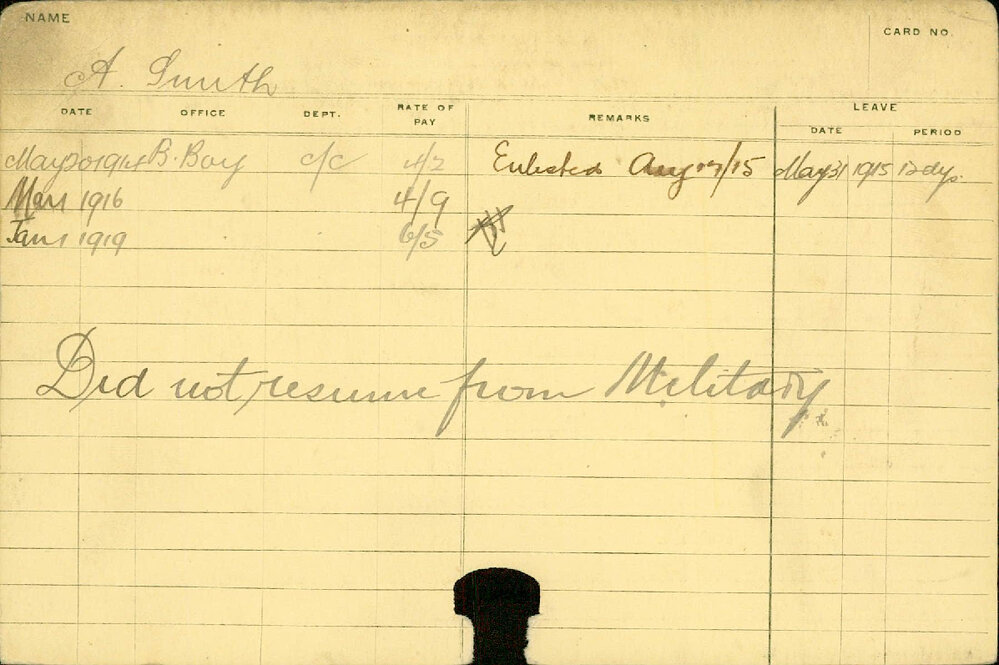 NAME
CARD NO.
A. Smith
DATE OFFICE DEPT. RATE OF PAY REMARKS LEAVE
DATE PERIOD
May 20 1914 B. Boy c/c 4/2 Enlisted Aug /15 May 31 1915 12 dys.
Mar 1 1916 4/9
Jan 1 1919 6/5
Did not resume from Military